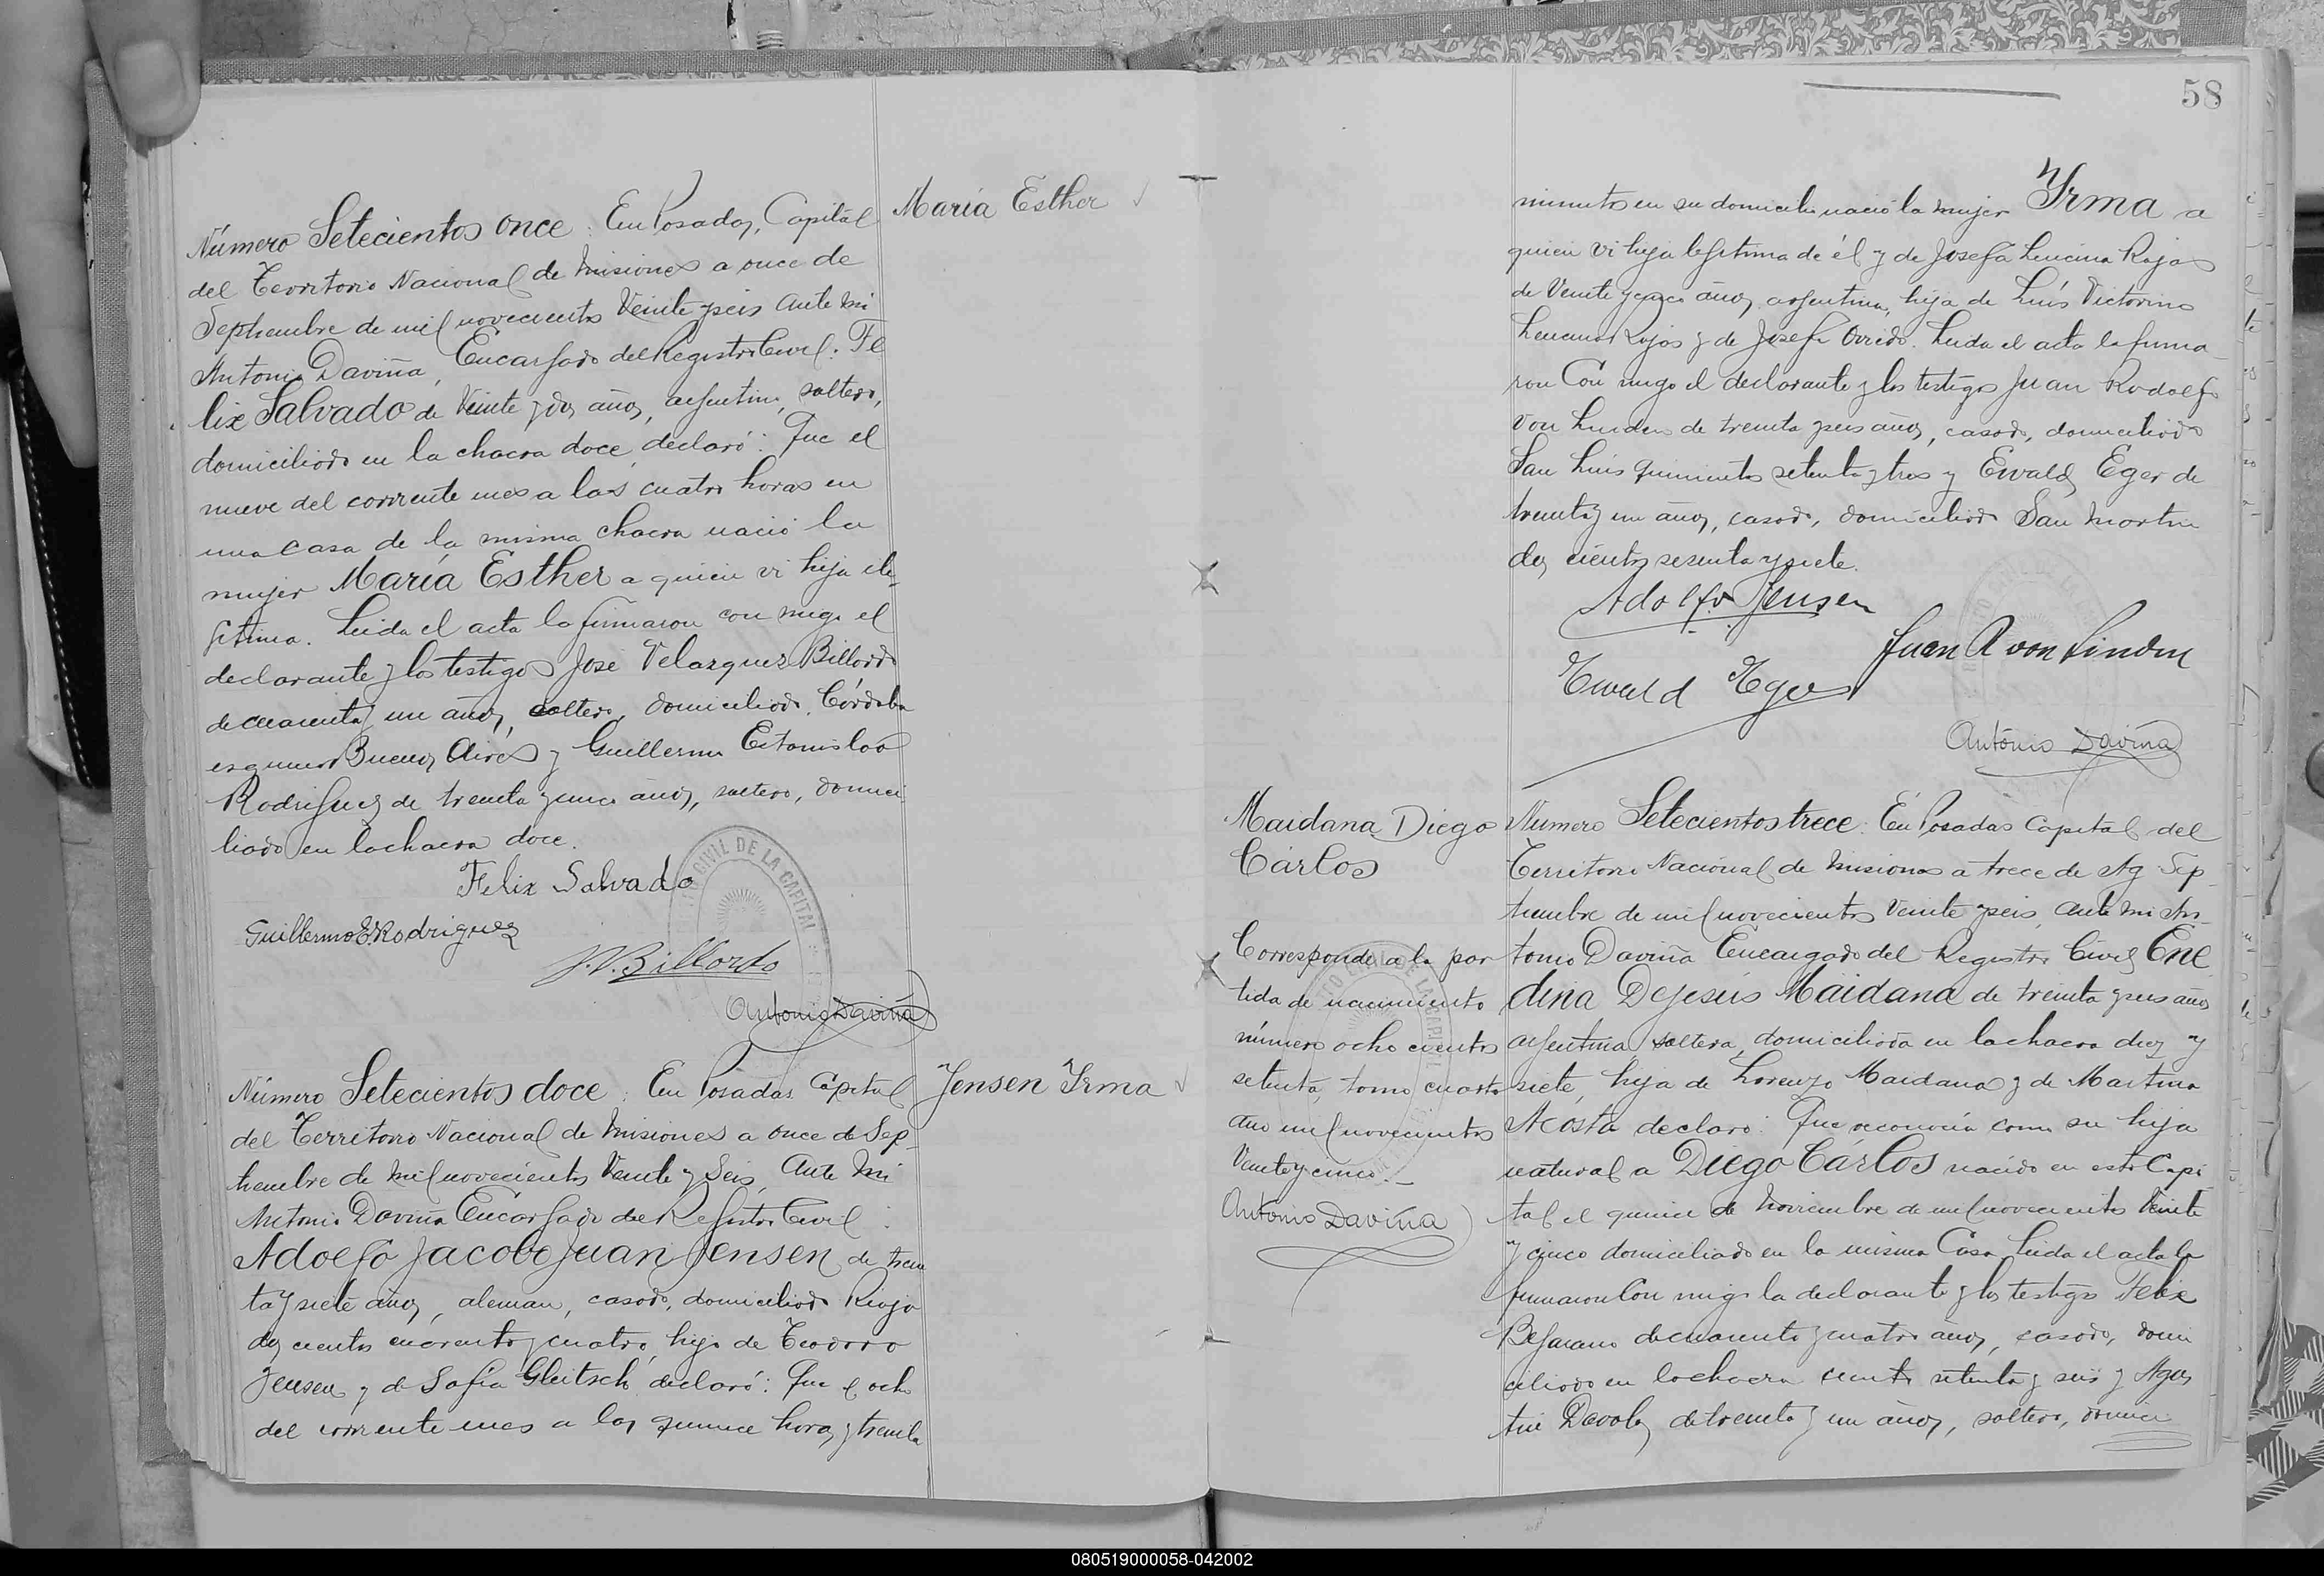 Número Setecientos once: En Posadas, Capital
del Territorio Nacional de Misiones a once de
Septiembre de mil novecientos Veinte y seis ante mi
Antonio Daviña, Encargado del Registro Civil: Fe
lix Salvado de Veinte y dos años, argentino, soltero,
domiciliado en la chacra doce, declaró: Que el
nueve del corriente mes a las cuatro horas en
una casa de la misma chacra nació la
mujer María Esther a quien vi hija ile
gítima. Leida el acta la firmaron con migo el
declarante y los testigos José Velazquez Billordo
de cuarenta y un años, soltero, domiciliado Córdoba
esquina Buenos Aires y Guillermo Estanislao
Rodriguez de treinta y cinco años, soltero, domici
liado en la chacra doce.
Felix Salvado
Guillermo E. Rodriguez
J. V. Billordo
Antonio Daviña
María Esther
Número Setecientos doce: En Posadas Capital
del Territorio Nacional de Misiones a once de Sep
tiembre de mil novecientos Veinte y Seis, Ante Mi
Antonio Daviña Encargado del Registro Civil:
Adolfo Jacobo Juan Jensen de trein
ta y siete años, aleman, casado, domiciliado Rioja
dos cientos cuarenta y cuatro, hijo de Teodoro
Jensen y de Sofía Gleitsch declaró: Que el ocho
del corriente mes a las quince horas y treinta
Jensen Yrma
58
minutos en su domicilio nació la mujer Yrma a
quien vi hija legítima de él y de Josefa Lencina Rojas
de Veinte y cinco años, argentina, hija de Luís Victorino
Lencina Rojas y de Josefa Oviedo. Leida el acta la firma
ron Con migo el declarante y los testigos Juan Rodolfo
von Linden de treinta y seis años, casado, domiciliado
San Luis quinientos setenta y tres y Ewald Eger de
treinta y un años, casado, domiciliado San Martin
dos cientos sesenta y siete.
Adolfo Jensen
Juan R von Linden
Ewald Eger
Antonio Daviña
Maidana Diego
Cárlos
Corresponde a la par
tida de nacimiento
número ocho cientos
setenta, tomo cuarto
año mil novecientos
Veinte y cinco.
Antonio Daviña
Número Setecientos trece: En Posadas Capital del
Territorio Nacional de Misiones a trece de Ag Sep
tiembre de mil novecientos Veinte y seis, ante mi An
tonio Daviña Encargado del Registro Civil Ene
dina Dejesús Maidana de treinta y seis años
argentina, soltera, domiciliada en la chacra diez y
siete, hija de Lorenzo Maidana y de Martina
Acosta declaró: Que reconocía como su hijo
natural a Diego Cárlos nacido en esta Capi
tal el quince de Noviembre de mil novecientos Veinte
y cinco domiciliado en la misma Casa. Leida el acta la
firmaron Con migo la declarante y los testigos Felix
Bejarano de cuarenta y cuatro años, casado, domi
ciliado en la chacra ciento setenta y seis y Agus
tin Davolos de treinta y un años, soltero, domici
080519000058-042002